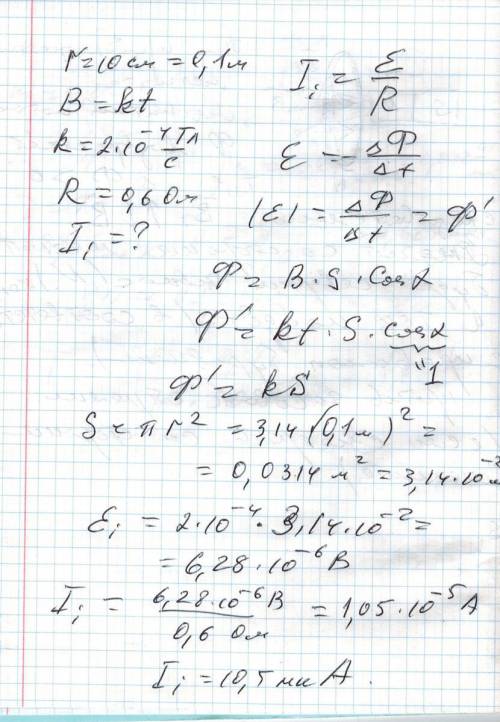 r=10 см = 0,1 м
B = kt
k = 2·10⁻⁴ Тл/с
R = 0,6 Ом
I_i = ?
I_i = ℰ/R
ℰ = -ΔΦ/Δt
|ℰ| = ΔΦ/Δt = Φ'
Φ = B·S·cosα
Φ' = kt·S·cosα
"1
Φ' = kS
S = πr² = 3,14 (0,1м)² =
= 0,0314 м² = 3,14·10⁻² м
ℰ_i = 2·10⁻⁴ · 3,14·10⁻² =
= 6,28·10⁻⁶ В
I_i = 6,28·10⁻⁶ В / 0,6 Ом = 1,05·10⁻⁵ А
I_i = 10,5 мк А.